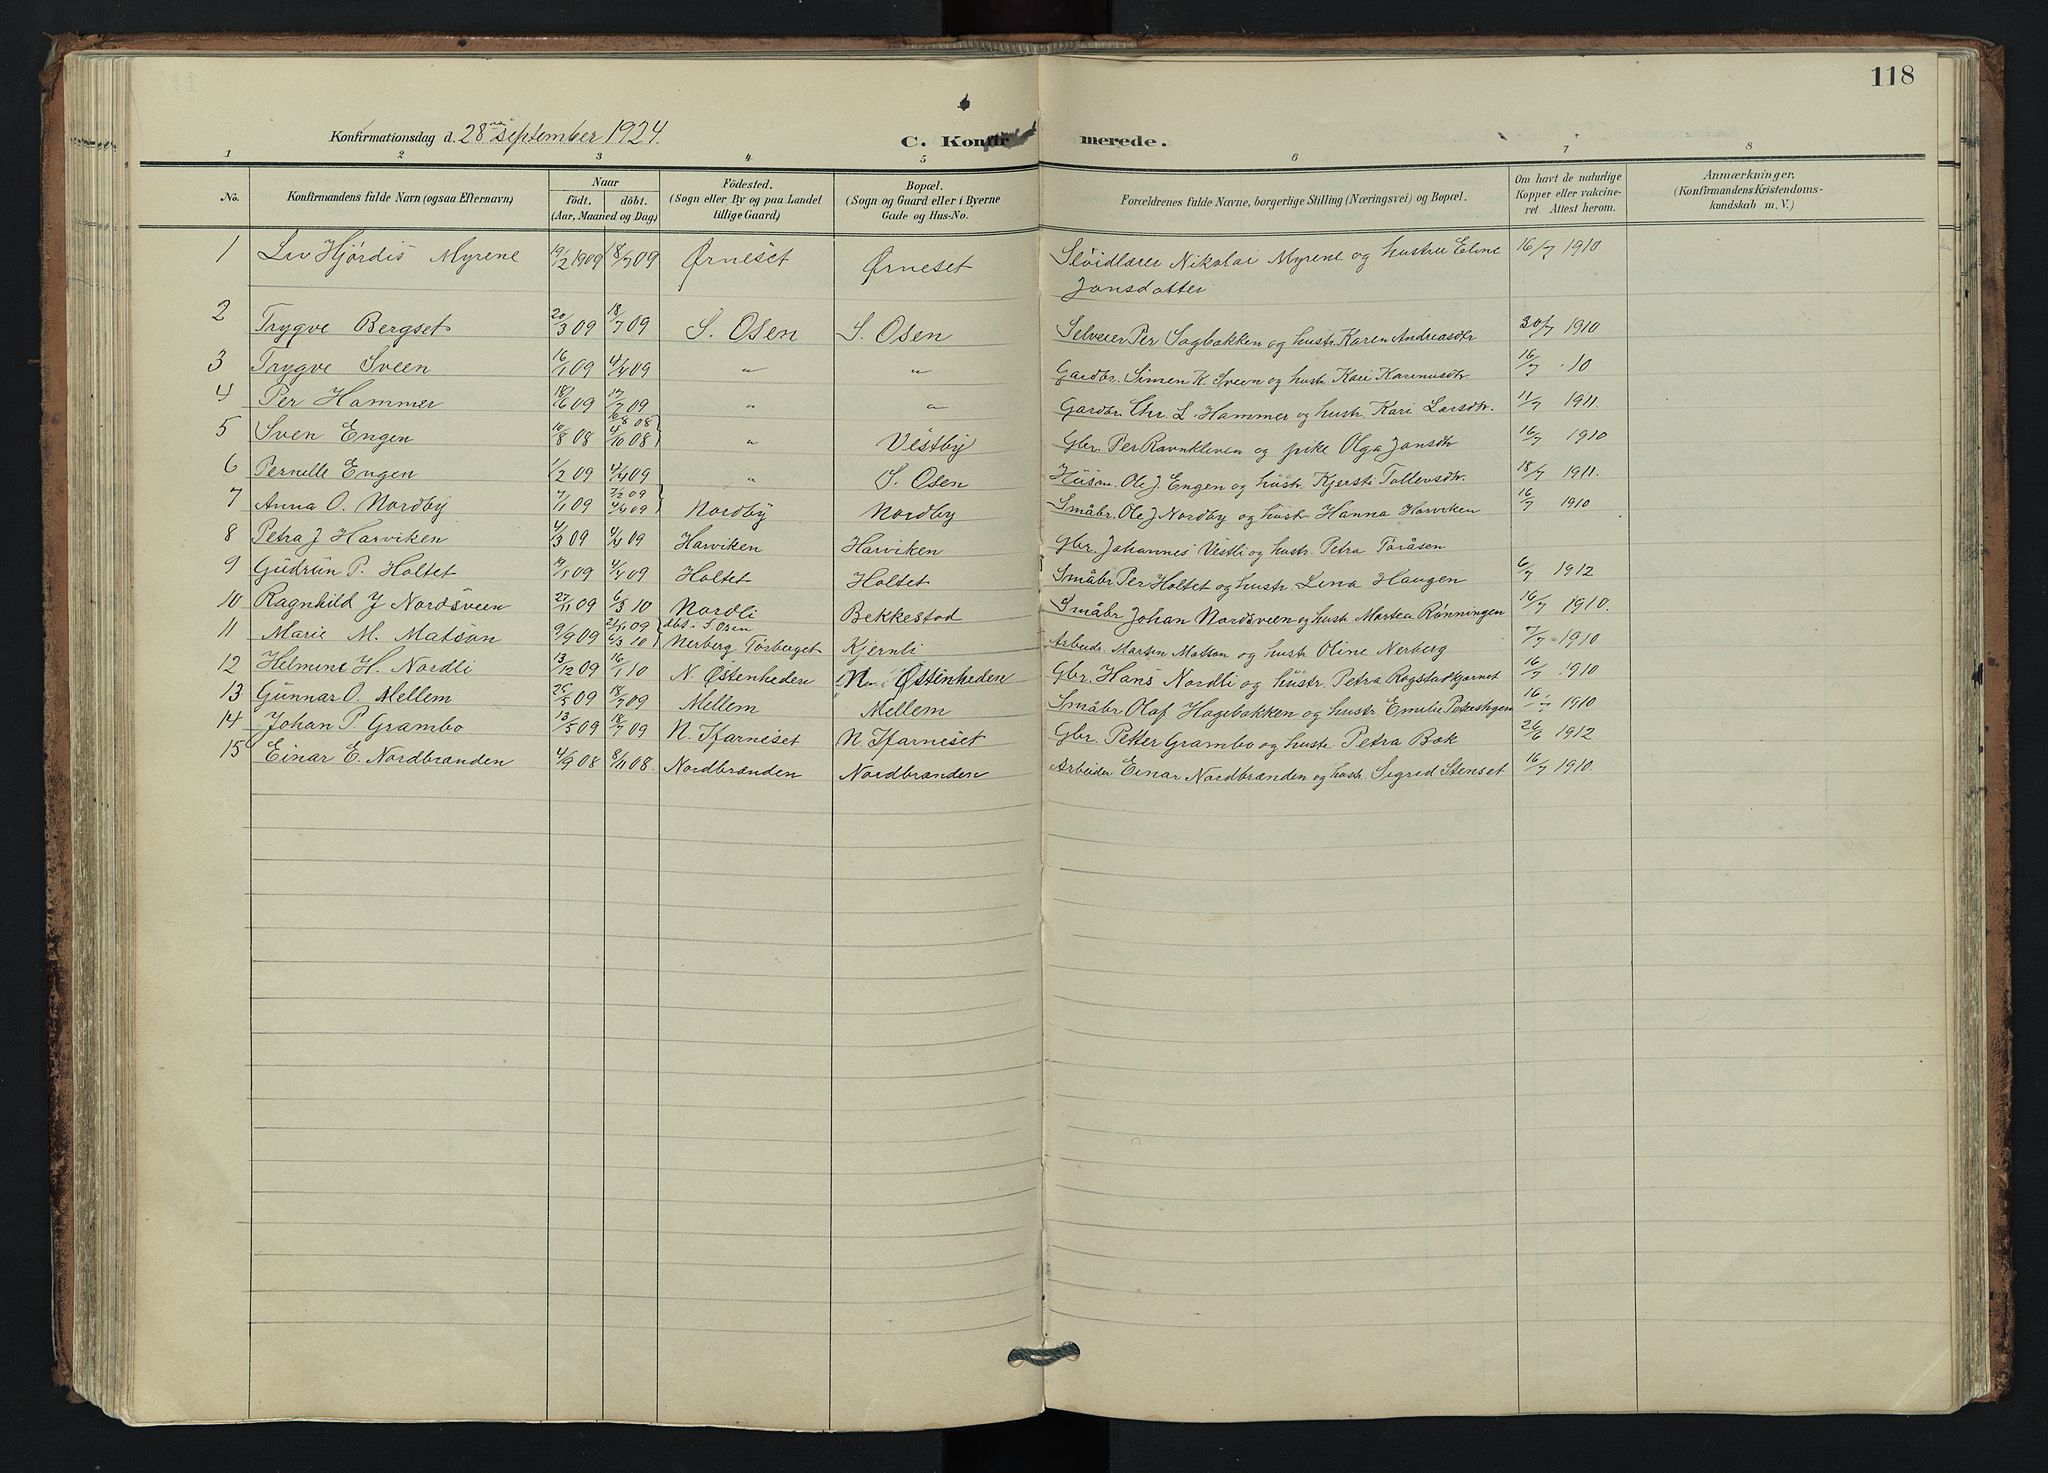 118
Konfirmationsdag d. 28 september 1924.
C. Konfirmerede.
1 2 3 4 5 6 7 8
No. Konfirmandens fulde Navn (ogsaa Efternavn) Naar födt. döbt. (Aar, Maaned og Dag) Födested. (Sogn eller By og paa Landet tillige Gaard) Bopæl. (Sogn og Gaard eller i Byerne Gade og Hus-No. Forældrenes fulde Navne, borgerlige Stilling (Næringsvei) og Bopæl. Om havt de naturlige Kopper eller vakcineret. Attest herom. Anmærkninger. (Konfirmandens Kristendomskundskab m. V.)
1 Liv Hjørdis Myrene 19/2 1909 18/7 09 Ørneset Ørneset Sløidlærer Nikolai Myrene og hustru Eline 16/7 1910
Jonsdatter
2 Trygve Bergset 20/3 09 18/7 09 S. Osen S. Osen Selveier Per Sagbakken og hustr. Karen Andreasdtr 30/7 1910
3 Trygve Sveen 16/1 09 4/4 09 " " Gardbr. Simen K. Sveen og hustr. Kari Karinusdtr. 16/7 10
4 Per Hammer 18/6 09 17/7 09 " " Gardbr. Chr. L. Hammer og hustr. Kari Larsdtr. 11/7 1911.
5 Sven Engen 10/8 08 16/8 08 4/10 08 " Vestby Gbr. Per Ravnkleven og pike Olga Jansdtr 16/7 1910
6 Pernille Engen 1/2 09 4/4 09 " S. Osen Husm. Ole J. Engen og hustr. Kjersti Tollevsdtr. 18/7 1911.
7 Anna O. Nordby 7/1 09 7/2 09 4/4 09 Nordby Nordby Småbr. Ole J Nordby og hustr Hanna Harviken 16/7 1910
8 Petra J Harviken 4/3 09 4/4 09 Harviken Harviken Gbr. Johannes Vestli og hustr. Petra Toråsen
9 Gudrun P. Holtet 4/4 09 Holtet Holtet Småbr Per Holtet og hustr. Lina Haugen 6/7 1912
10 Ragnhild J Nordsveen 27/11 09 6/3 10 Nordli Bekkestad Småbr Johan Nordsveen og hustr Martea Rønningen 16/7 1910.
11 Marie M. Matson 9/9 09 6/3 10 dbt i S. Osen Nerberg Torberget Kjernli Arbeidr. Martin Matson og hustr Oline Nerberg 7/7 1910
12 Helmine H. Nordli 13/12 09 16/1 10 N. Østenheden N. Østenheden Gbr. Hans Nordli og hustr. Petra Rogstadkjernet 16/7 1910
13 Gunnar O. Mellem 18/7 09 Mellem Mellem Småbr Olaf Hagebakken og hustr. Emilie 16/7 1910
14 Johan P. Grambo 13/5 09 18/7 09 N. Tfarneset N. Tfarneset Gbr. Petter Grambo og hustr. Petra Bæk 26/6 1912.
15 Einar E. Nordbranden 4/9 08 8/11 08. Nordbranden Nordbranden Arbeider Einar Nordbranden og hustr. Sigrid Stenset 16/7 1910.